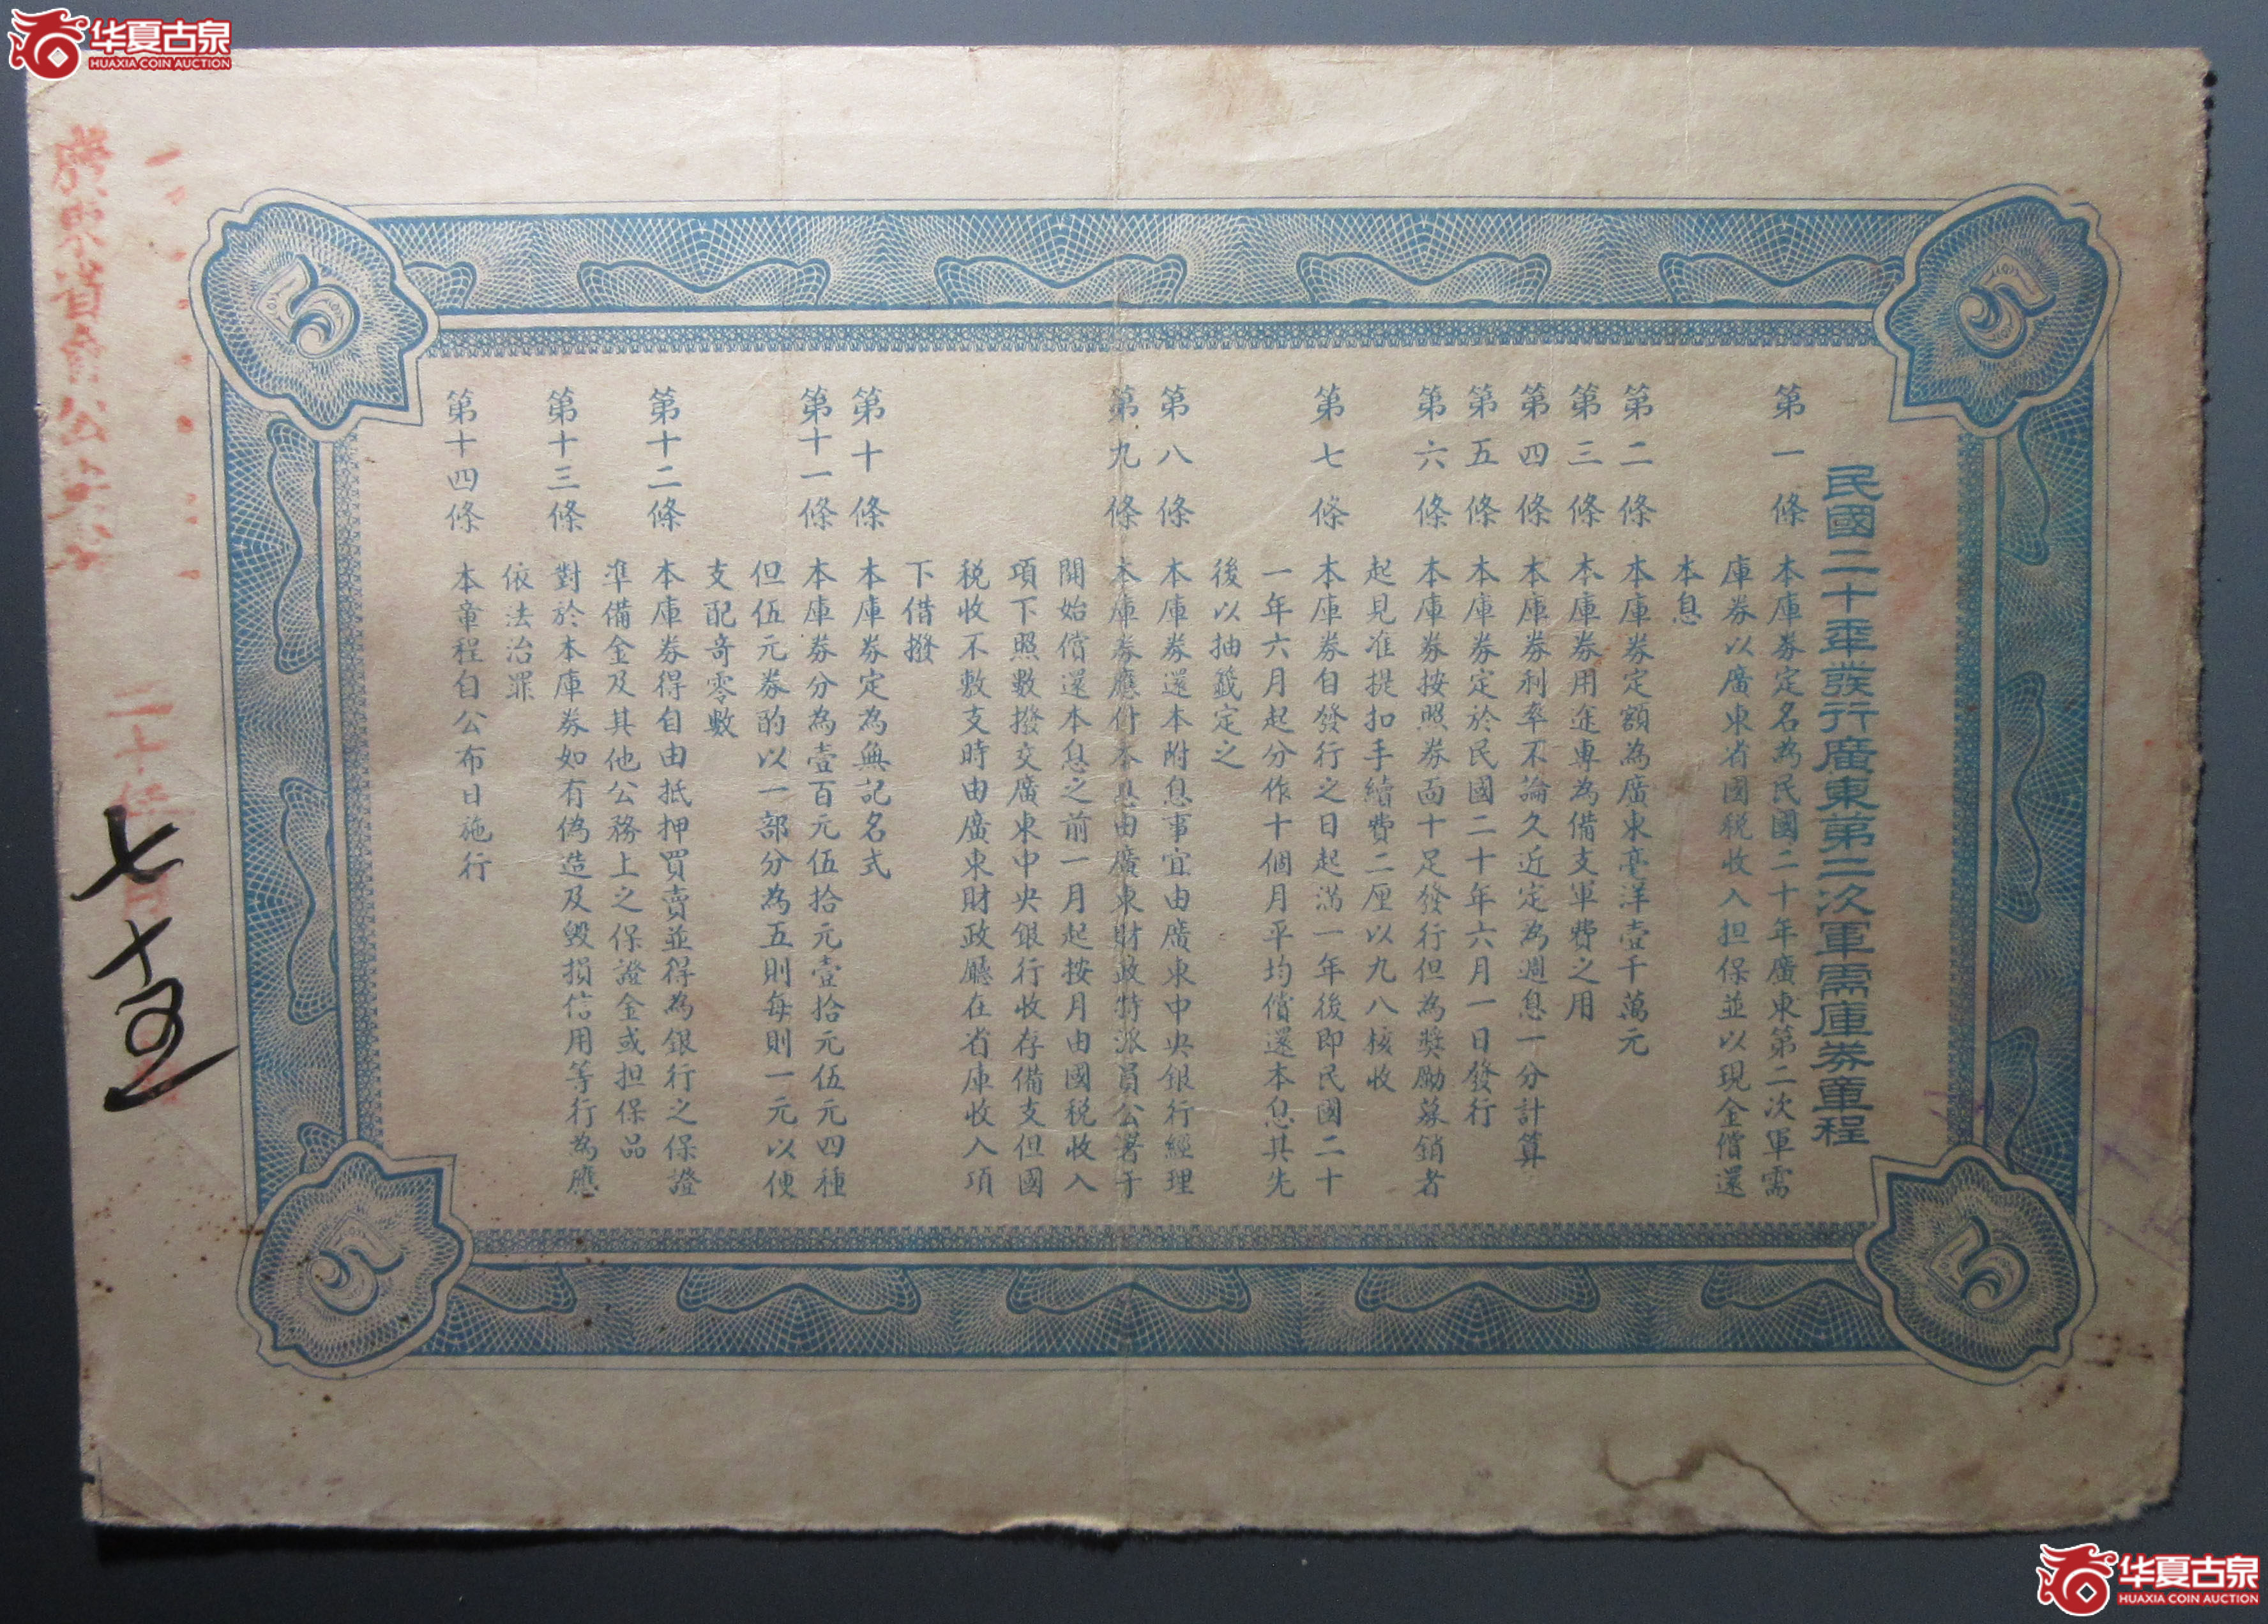 华夏古泉
HUAXIA COIN AUCTION
民國二十年發行廣東第二次軍需庫券章程
第一條 本庫券定名為民國二十年廣東第二次軍需
庫券以廣東省國税收入担保並以現金償還
本息
第二條 本庫券定額為廣東毫洋壹千萬元
第三條 本庫券用途專為備支軍費之用
第四條 本庫券利率不論久近定為週息一分計算
第五條 本庫券定於民國二十年六月一日發行
第六條 本庫券按照券面十足發行但為奬勵募銷者
起見准提扣手續費二厘以九八核收
第七條 本庫券自發行之日起滿一年後即民國二十
一年六月起分作十個月平均償還本息其先
後以抽籤定之
第八條 本庫券還本附息事宜由廣東中央銀行經理
第九條 本庫券應付本息由廣東財政特派員公署于
開始償還本息之前一月起按月由國税收入
項下照數撥交廣東中央銀行收存備支但國
税收不敷支時由廣東財政廳在省庫收入項
下借撥
第十條 本庫券定為無記名式
第十一條 本庫券分為壹百元伍拾元壹拾元伍元四種
但伍元券酌以一部分為五則每則一元以便
支配奇零數
第十二條 本庫券得自由抵押買賣並得為銀行之保證
準備金及其他公務上之保證金或担保品
第十三條 對於本庫券如有偽造及毀損信用等行為應
依法治罪
第十四條 本章程自公布日施行
廣東省會公安
二十年 月
七十五
5
5
5
5
华夏古泉
HUAXIA COIN AUCTION